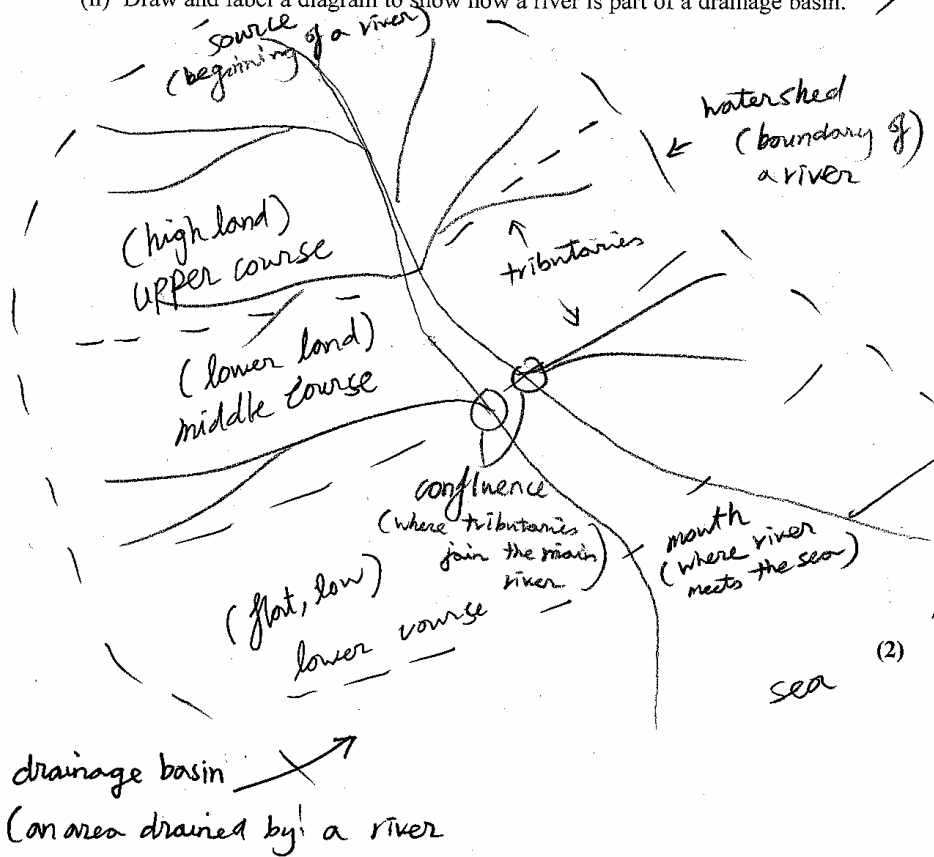 (ii) Draw and label a diagram to show how a river is part of a drainage basin.
source
(beginning of a river)
watershed
(boundary of)
a river
(high land)
upper course
tributaries
(lower land)
middle course
confluence
(where tributaries
join the main
river)
mouth
(where river
meets the sea)
(flat, low)
lower course
(2)
sea
drainage basin
(an area drained by a river